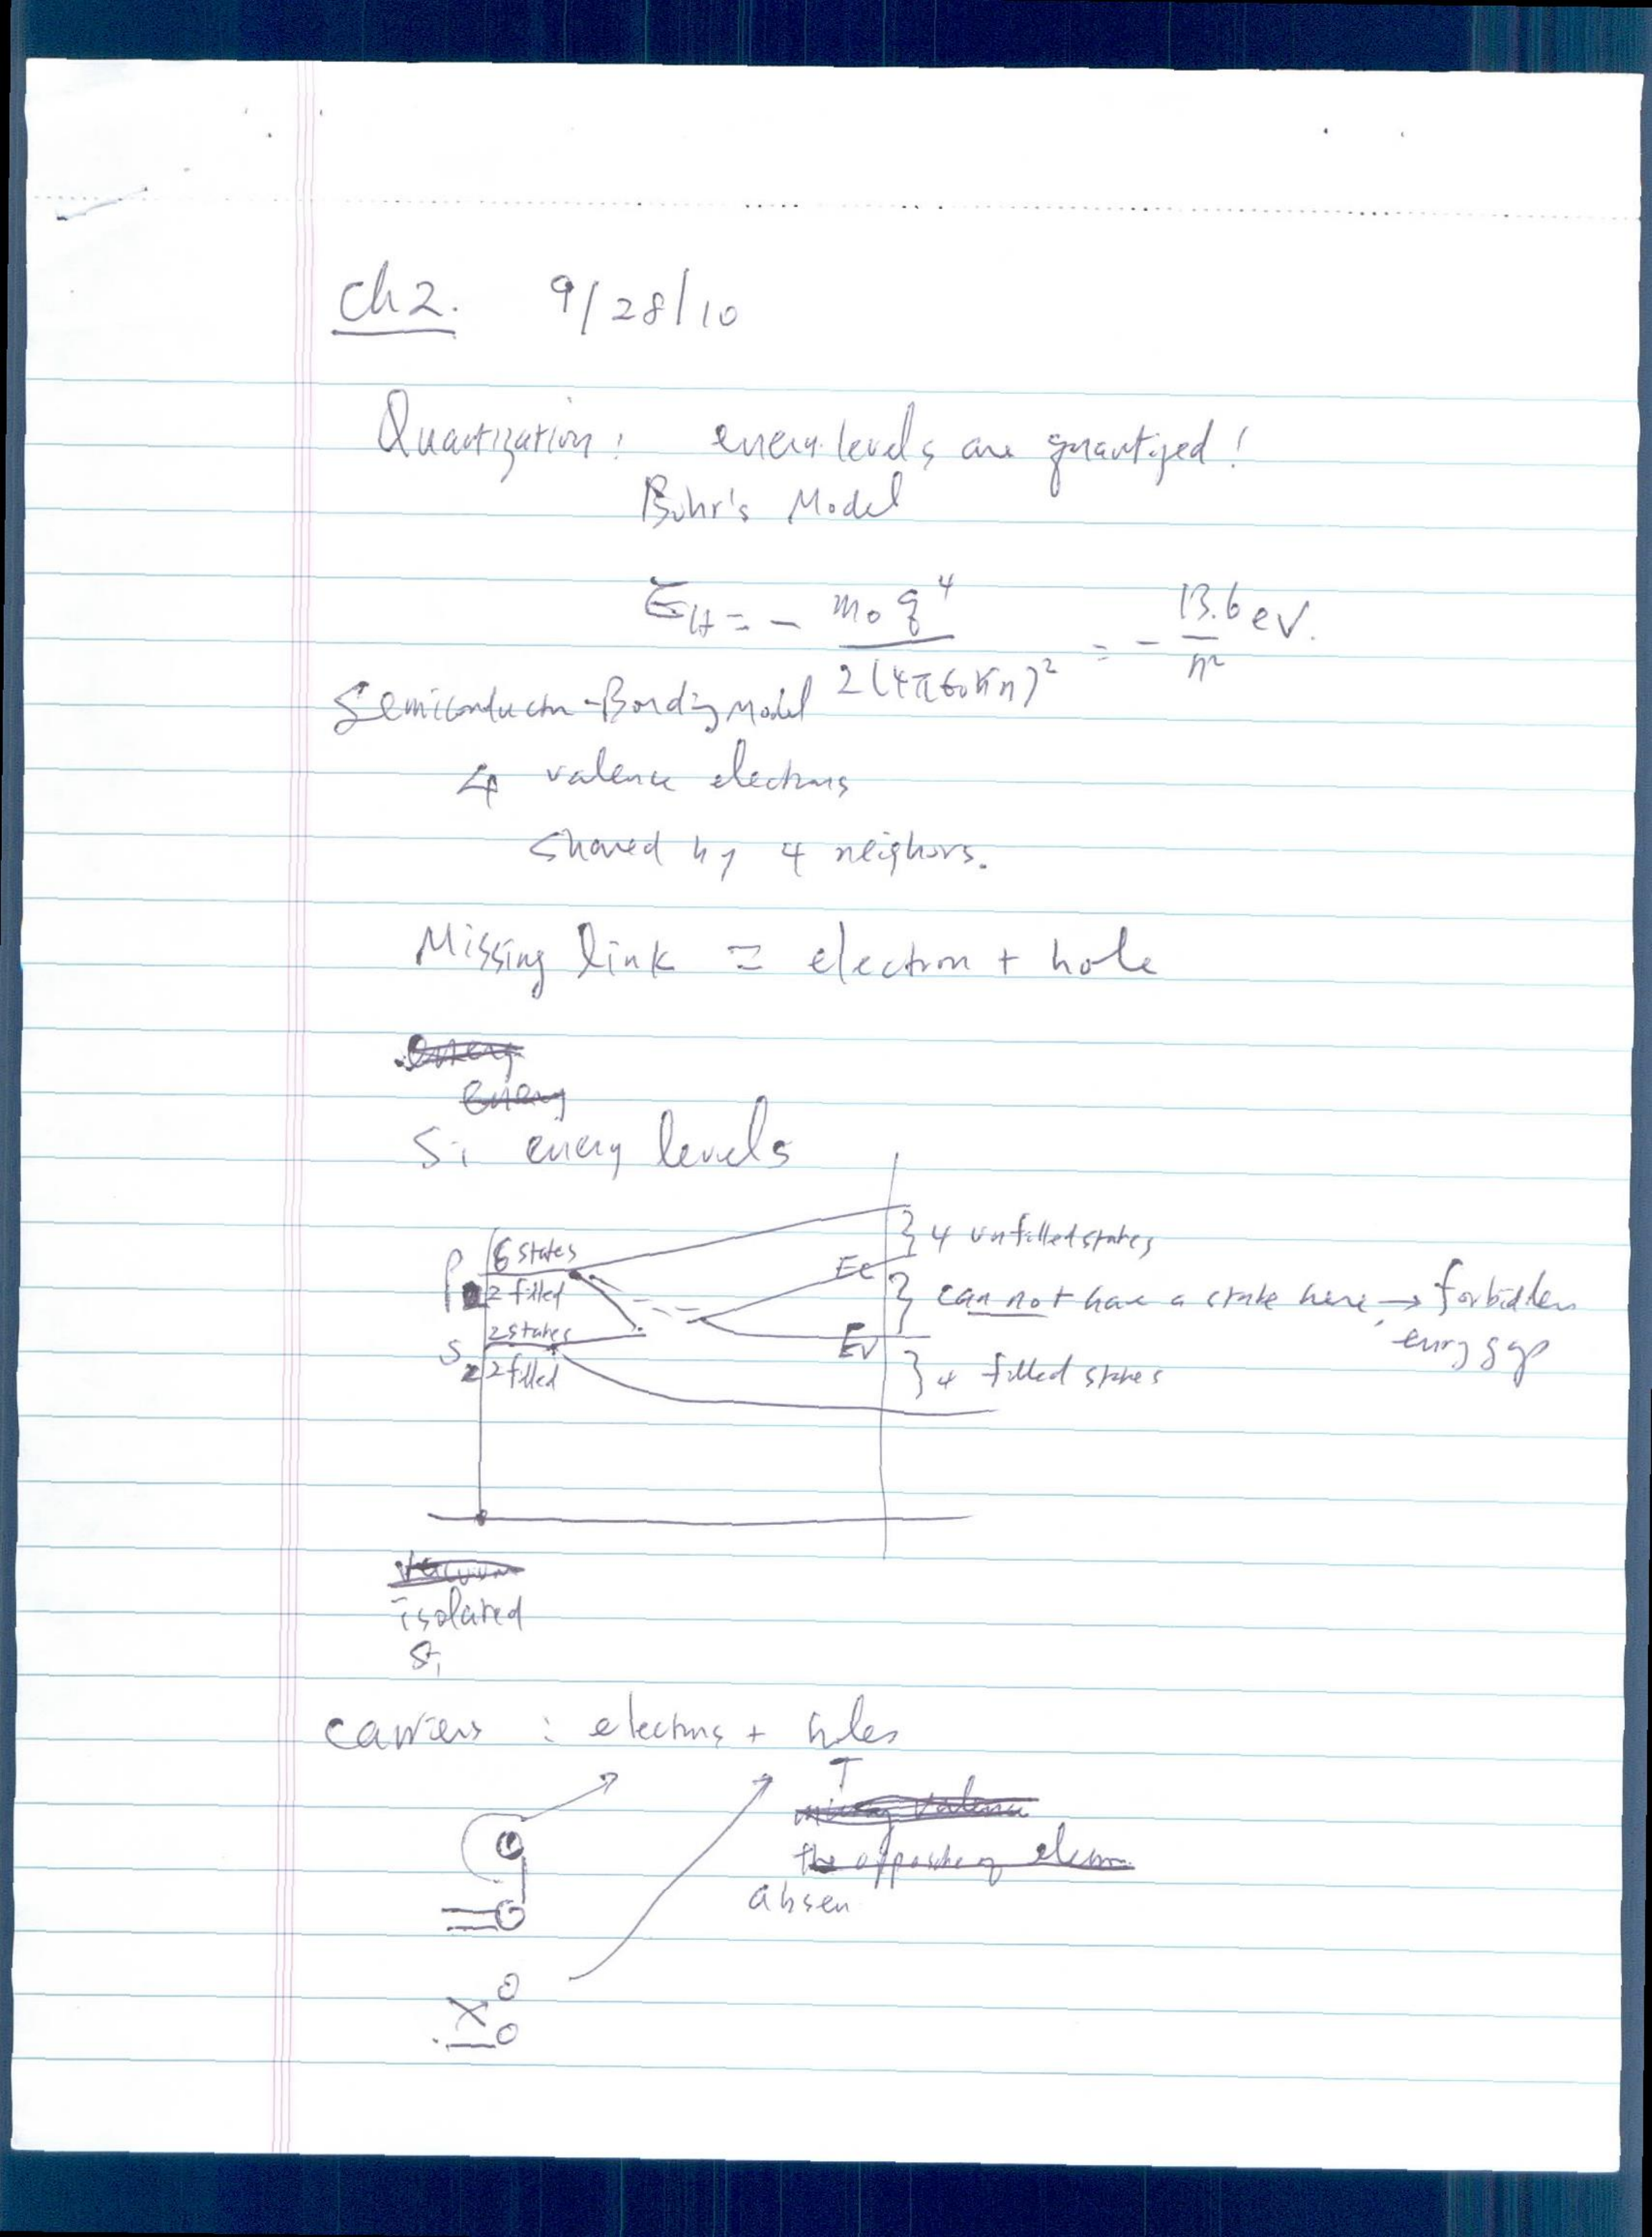 Ch2. 9/28/10
Quantization: energy levels are quantized!
Bohr's Model
E_H = - m₀ q⁴ / 2(4πε₀ℏn)² = - 13.6 / n² eV.
Semiconductor-Bonding Model
4 valence electrons
Shared by 4 neighors.
Missing link = electron + hole
energy
energy
Si energy levels
P 6 states
2 filled
S 2 states
2 filled
} 4 unfilled states
Ec
} can not have a state here → forbidden
energy gap
Ev
} 4 filled states
isolated
Si
carriers : electrons + holes
the opposite of electron
absen